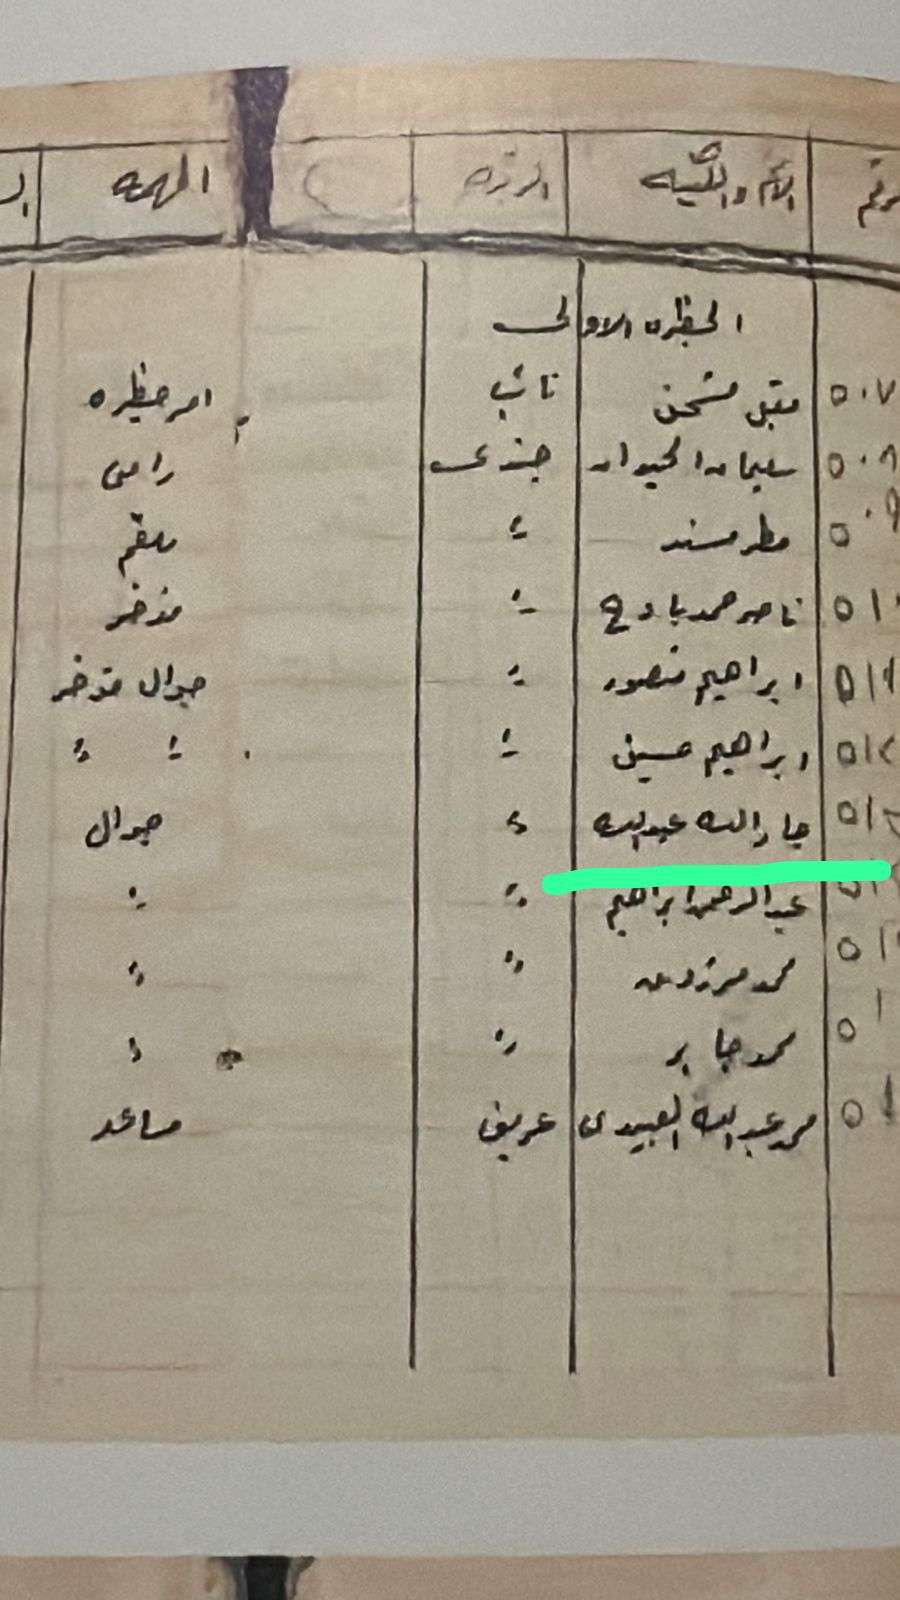 رقم الاسم والكنية الرتبة المهمة
الحظيره الاولى
٥٠٧ مقبل مشحن نائب امر حظيره
٥٠٨ سليمان الحيدان جندي رامي
٥٠٩ مطر مسند " ملقم
٥١٠ ناصر حمد با " مذخر
٥١١ ابراهيم منصور " جوال مذخر
٥١٢ ابراهيم حسين " " "
٥١٣ جادالله عبدالله " جوال
عبدالرحمن ابراهيم " "
محمد مرزوق " "
محمد جابر " "
محمد عبدالله العبيدي عريف مساعد